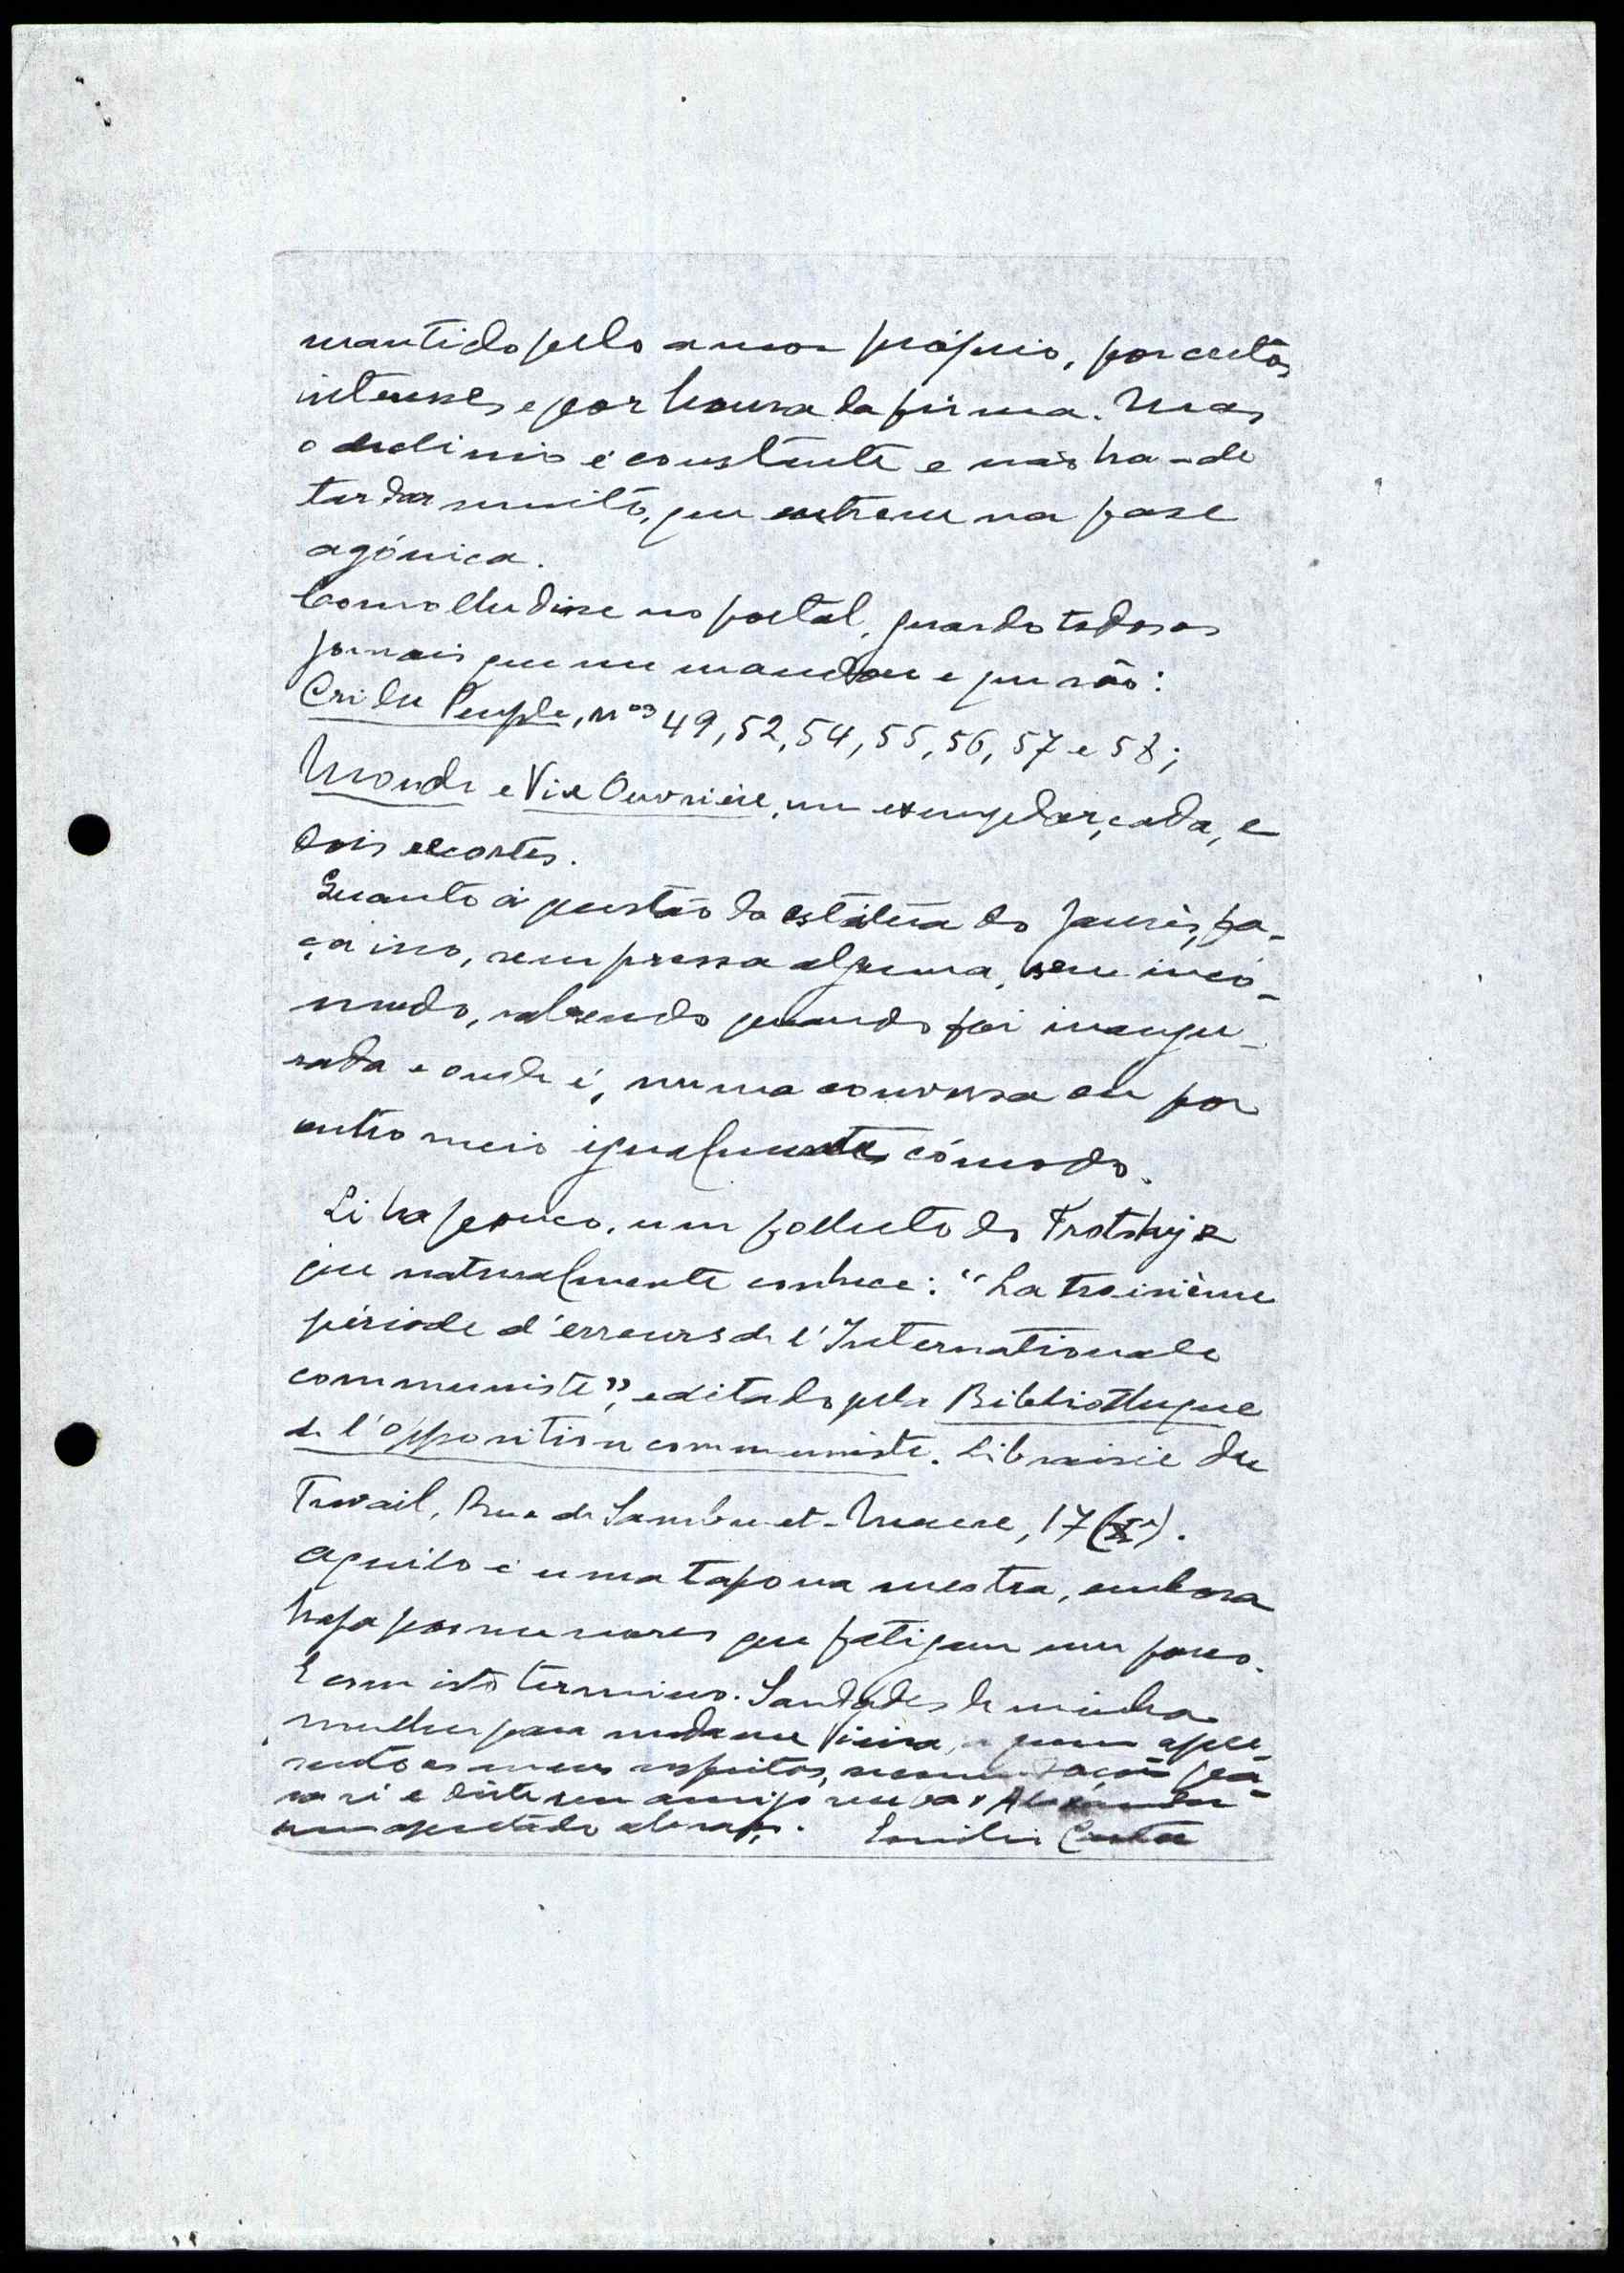 mantido pelo amor próprio, por certos
interesses e por honra da firma. Mas
o declinio é constante e não ha-de
tardar muito, que entrem na fase
agónica.
Como lhe disse no postal, guardo todos os
jornais que me mandou e que são:
Cri du Peuple, nos 49, 52, 54, 55, 56, 57 e 58;
Monde e Vie Ouvrière, um exemplar, cada, e
dois recortes.
Quanto á questão da estátua do Jaurès, fa-
ça isso, sem pressa alguma, sem incó-
modo, sabendo quando foi inaugu-
rada e onde é, numa conversa ou por
outro meio igualmente cómodo.
Li ha pouco, um folheto do Trotsky e
que naturalmente conhece: "La troisième
période d'erreurs de l'Internationale
communiste", editado pela Bibliothèque
de l'opposition communiste. Librairie du
Travail, Rue de Sambre-et-Meuse, 17 (Xe).
Aquilo é uma tapona mestra, embora
haja pormenores que fatigam um pouco.
E com isto termino. Saudades de minha
mulher para madame Vieira, a quem apre-
sento os meus respeitos, pa-
ra si e dêste seu amigo
um apertado abraço. Emilio Costa